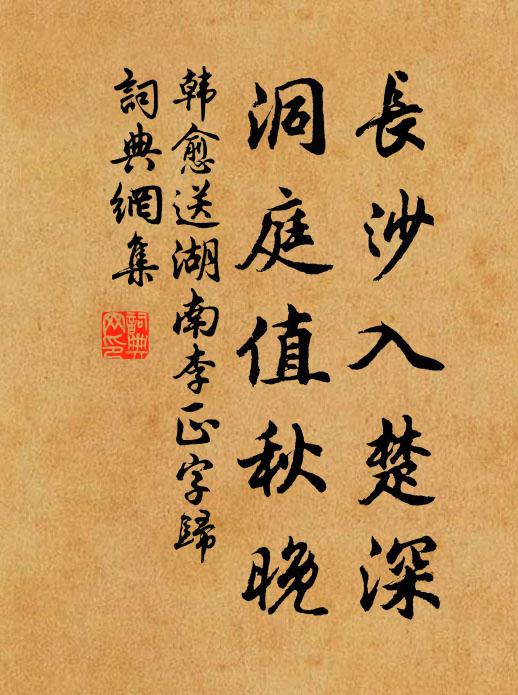 長沙入楚深
洞庭值秋晚
韩愈送湖南李正字歸
詞典網集
詞典网印